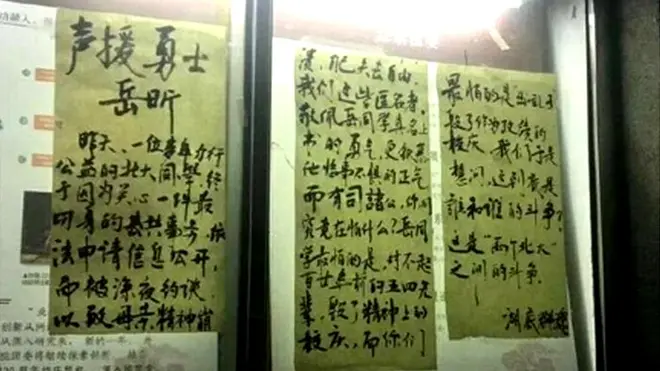 声援勇士
岳昕
昨天，一位多年力行
公益的北大同學，终
于因为关心一件最
切身的公共事务，依
法申请信息公开，
而被深夜约谈，
以致母亲精神崩
溃，失去自由。
我们这些匿名者，
敬佩岳同学真名上
书的勇气，更钦
他临事不惧的正气
而有司諸公，你们
究竟在怕什么？岳同
学最怕的是，对不起
百廿年前的五四先
辈，毁了精神上的
校庆，而你们
最怕的是出乱子
毁了作为政绩的
校庆。我们于是
想问，这到底是
誰和谁的斗争？
这是“两个北大”
之间的斗争。